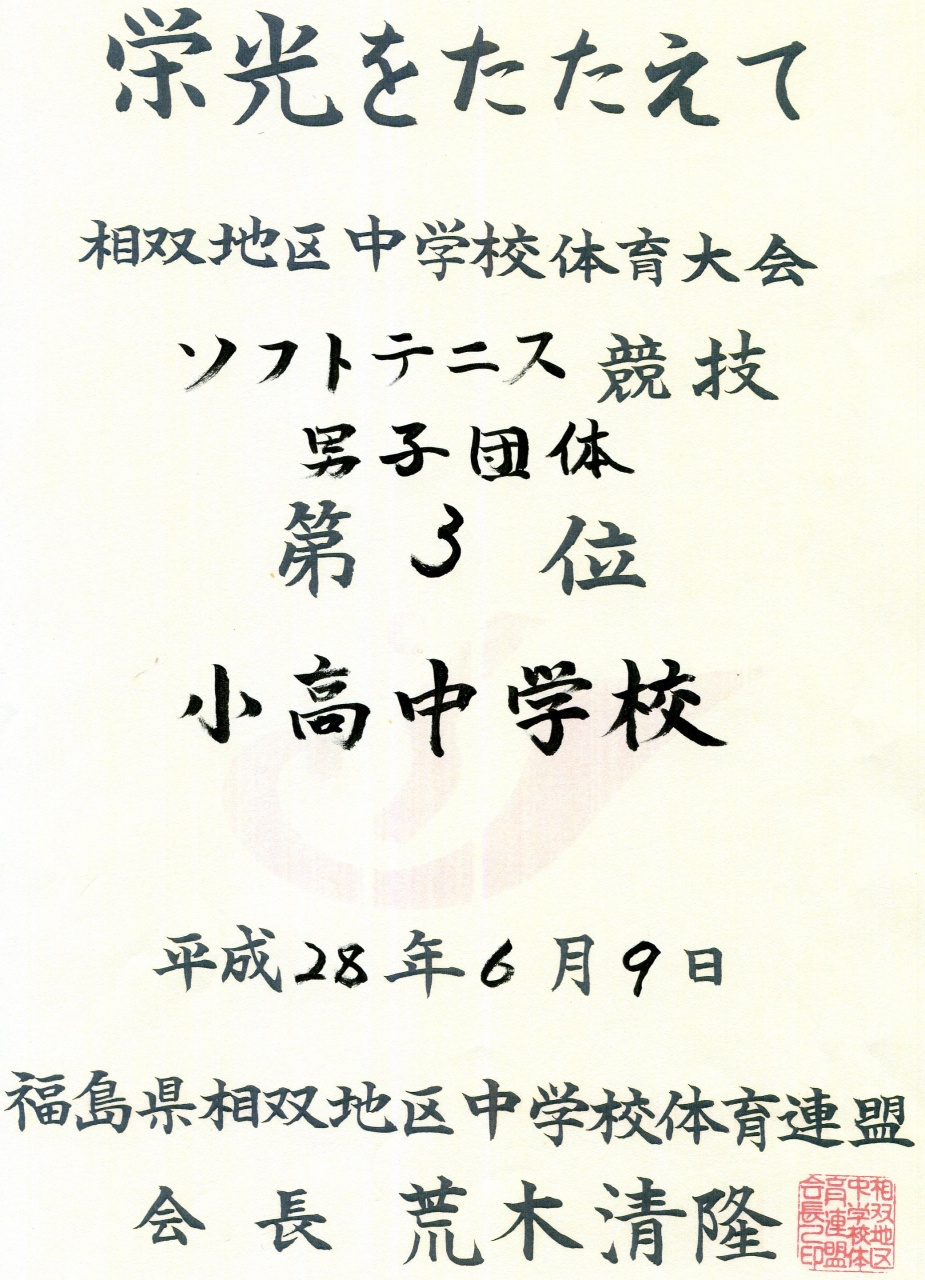 栄光をたたえて
相双地区中学校体育大会
ソフトテニス競技
男子団体
第3位
小高中学校
平成28年6月9日
福島県相双地区中学校体育連盟
会長 荒木清隆
相双地区
中学校体
育連盟
会長之印